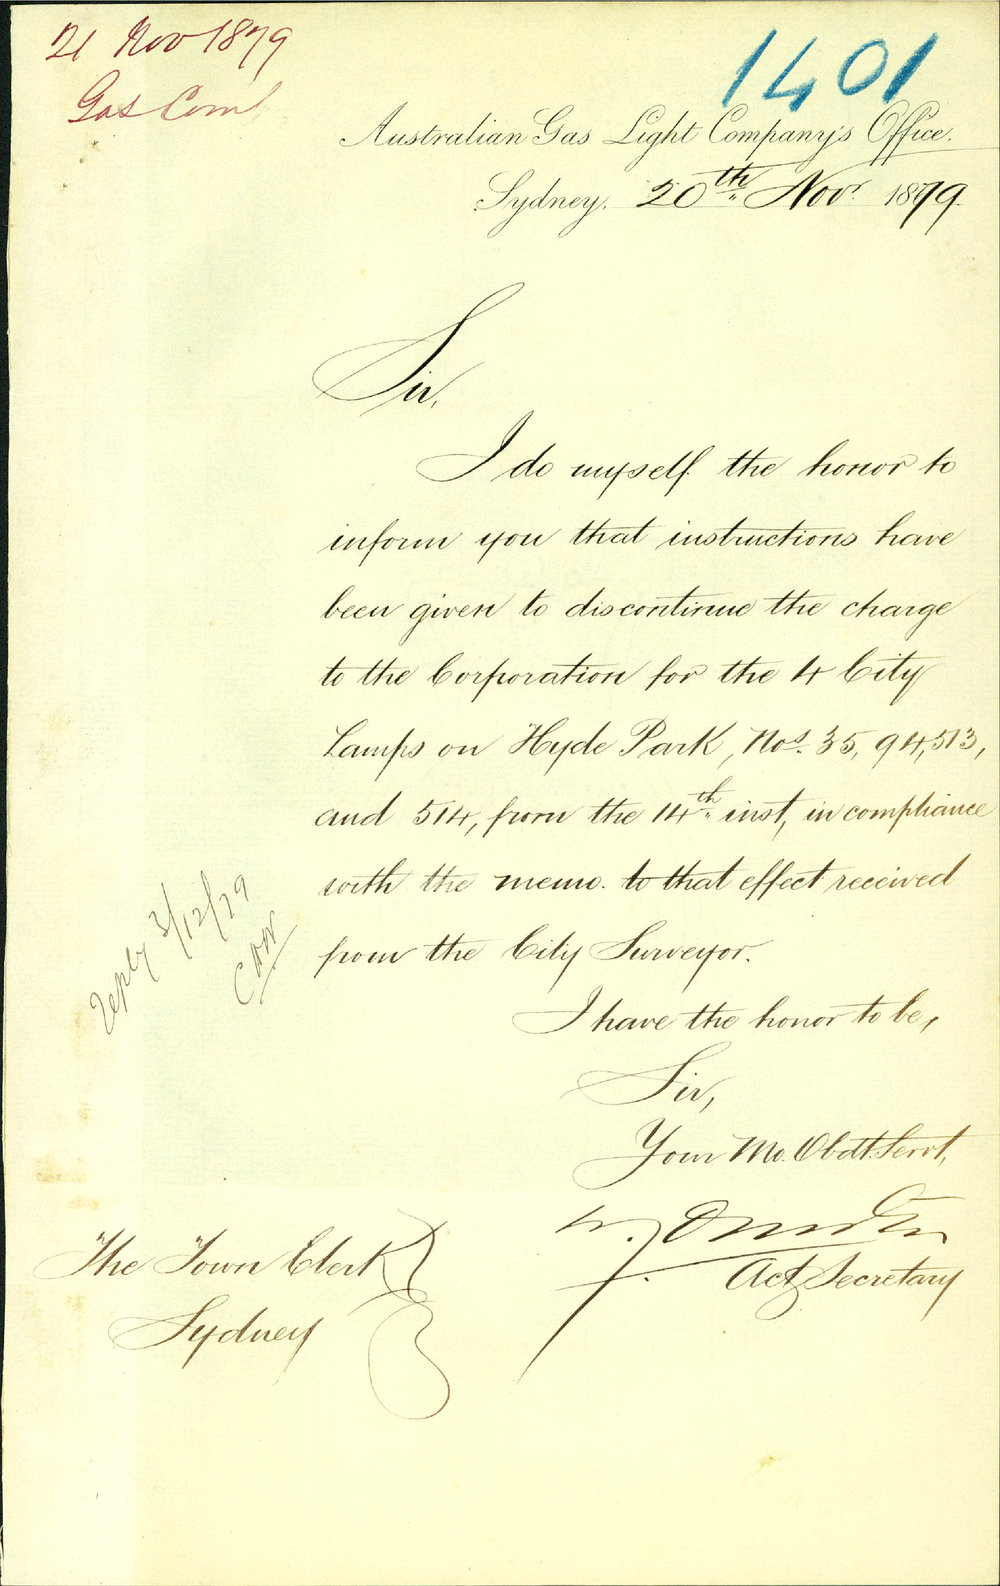 21 Nov 1879
Gas Com
1401
Australian Gas Light Company's Office.
Sydney. 20th Novr 1879.
Sir,
I do myself the honor to
inform you that instructions have
been given to discontinue the charge
to the Corporation for the 4 City
Lamps on Hyde Park, Nos. 35, 94, 513,
and 514, from the 14th inst, in compliance
with the memo. to that effect received
from the City Surveyor.
I have the honor to be,
Sir,
Your Mo. Obdt. Servt,
Actg Secretary
The Town Clerk
Sydney
Reply 3/12/79